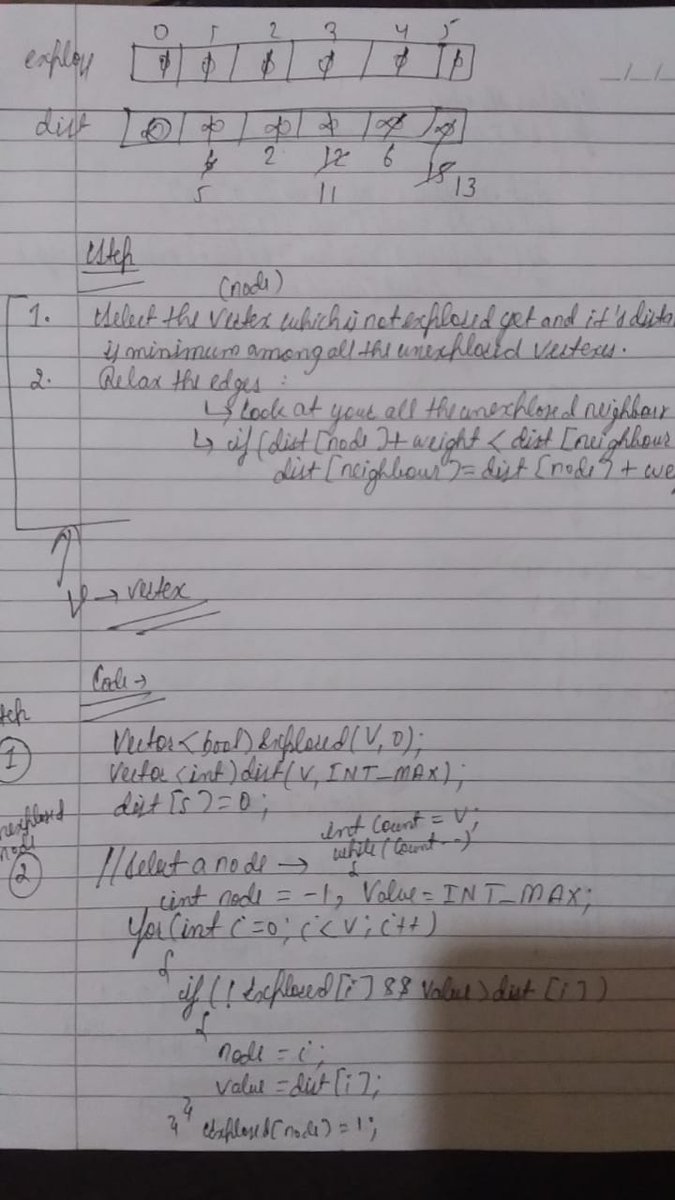 0 1 2 3 4 5
explo
dist 0 ∞ ∞ ∞ ∞ ∞
2 12 6 18 13
5 11
Step
(node)
1. Select the vertex which is not explored yet and it's dista
is minimum among all the unexplored vertexes.
2. Relax the edges :
↳ look at your all the unexplored neighbour
↳ if (dist[node] + weight < dist[neighbour
dist[neighbour] = dist[node] + we
V → vertex
Code →
tep
1 Vector<bool>Explored(V,0);
Vector<int>dist(V,INT_MAX);
dist[s]=0;
nexplored
node
int count = V;
while(count--)
{
2 //select a node →
int node = -1, Value=INT_MAX;
for(int i=0; i<V; i++)
{
if(!Explored[i] && Value>dist[i])
{
node = i;
value=dist[i];
} }
Explored[node]=1;